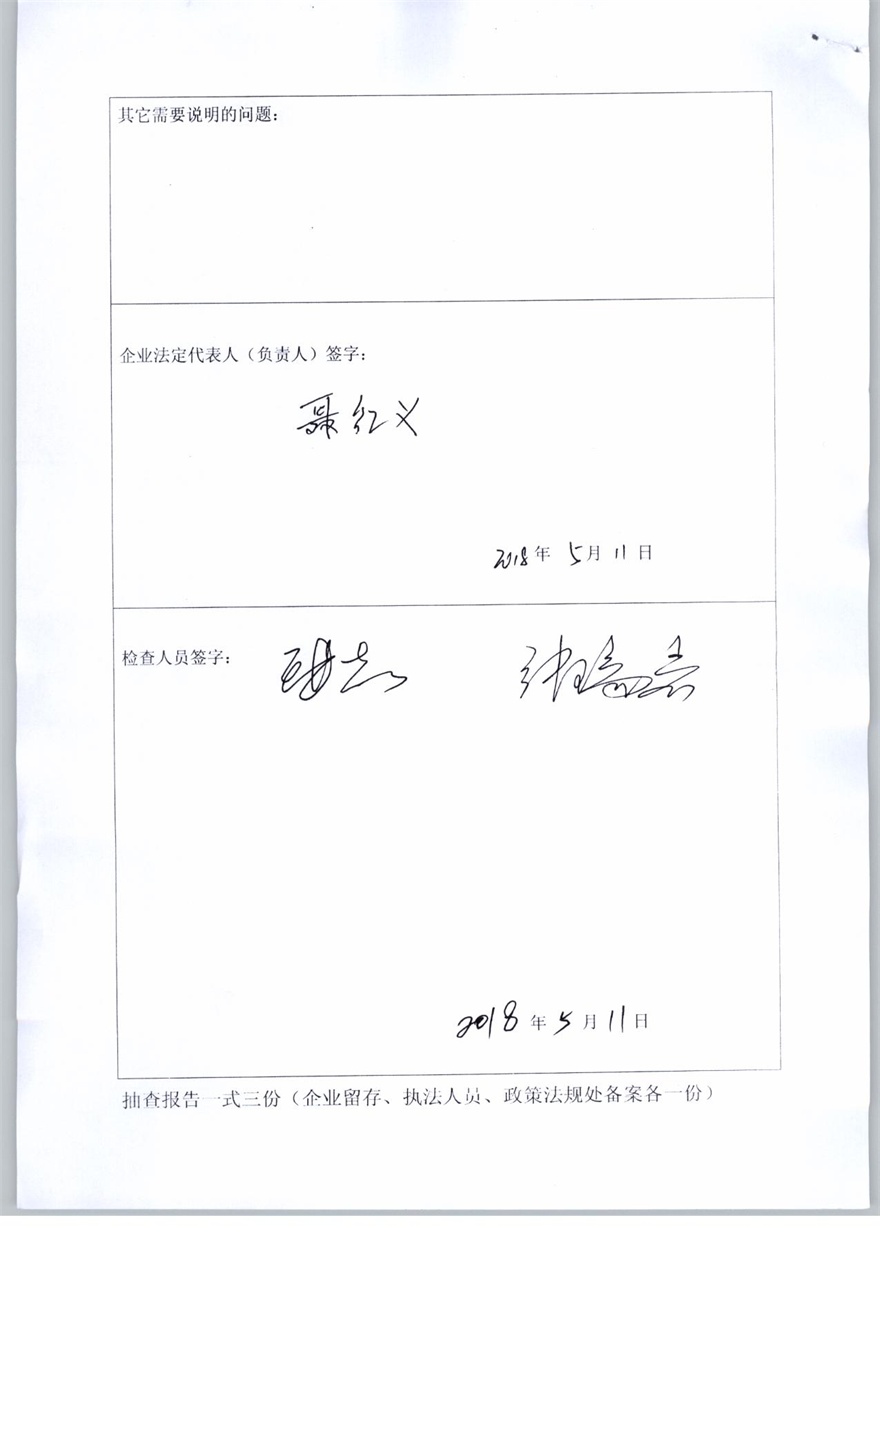 其它需要说明的问题：
企业法定代表人（负责人）签字：
聂红义
2018年 5月 11日
检查人员签字：
2018年 5月 11日
抽查报告一式三份（企业留存、执法人员、政策法规处备案各一份）